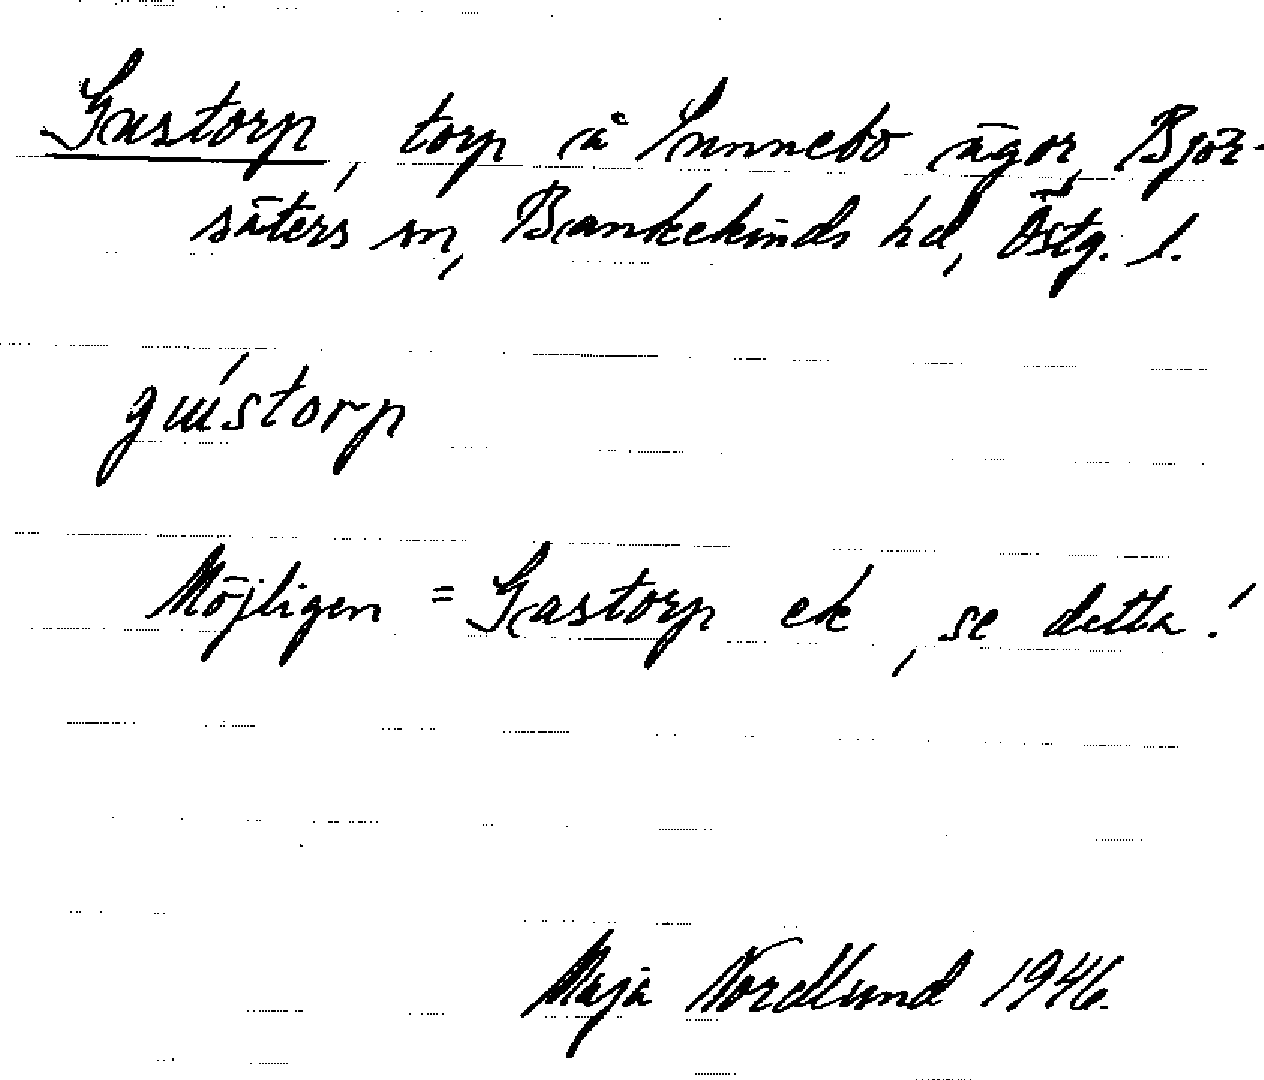 Gustorp, torp å Sunnebo ägor, Björ-
säters sn, Bankekinds hd, Östg. l.
gustorp
Möjligen = Gastorp ek, se detta!
Maja Nordlund 1946.